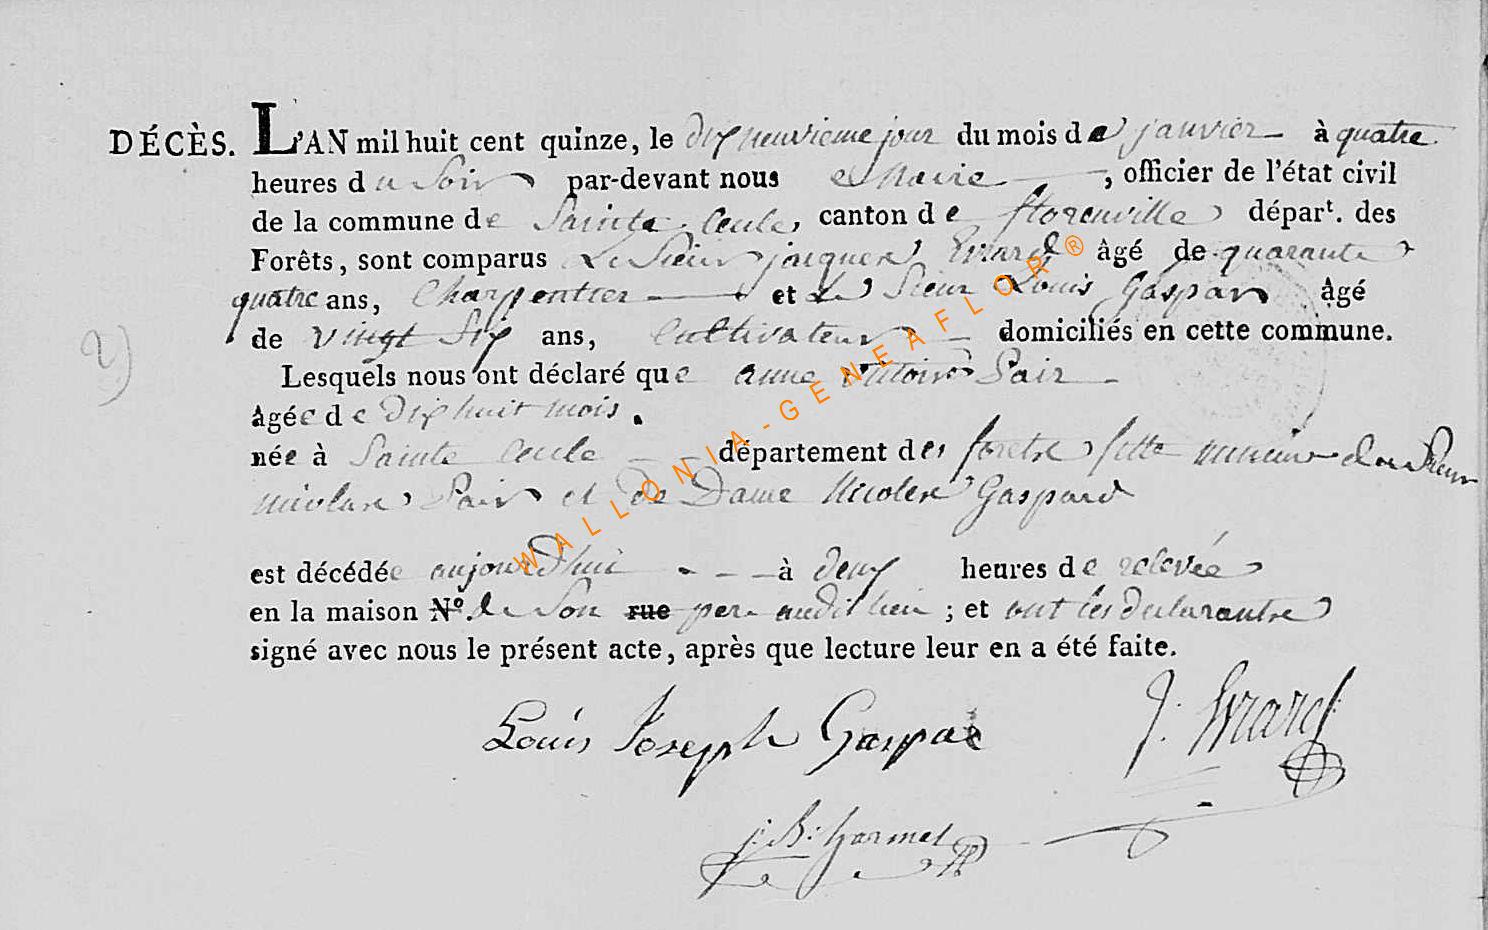 DÉCÈS. L'AN mil huit cent quinze, le dix neuvieme jour du mois de janvier à quatre
heures du soir par-devant nous Maire, officier de l'état civil
de la commune de Sainte Cecile, canton de florenville dépar<sup>t</sup>. des
Forêts, sont comparus Le Sieur jacques Evrard âgé de quarante
quatre ans, Charpentier et Le Sieur Louis Gaspar âgé
de vingt Six ans, Cultivateur domiciliés en cette commune.
Lesquels nous ont déclaré que anne antoine Pair
âgée de dix huit mois.
née à Sainte Cecile département des forets fille mineure du Sieur
nicolas Pair et de Dame Nicole Gaspard
est décédée aujourd'hui à deux heures de relevée
en la maison N°. de Son rue pere audit lieu ; et ont les declarants
signé avec nous le présent acte, après que lecture leur en a été faite.
Louis Joseph Gaspar J: Evrard
j: B: harmel
2)
WALLONIA-GENEAFLOR®